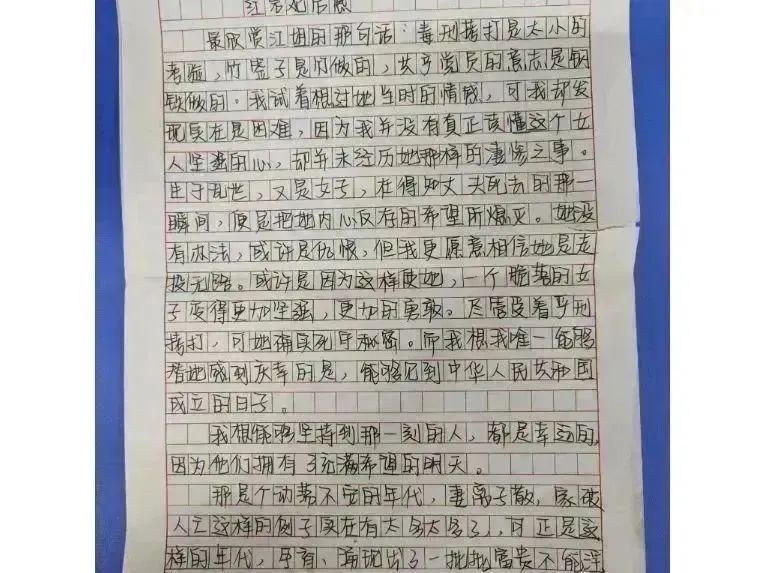 红岩观后感
最欣赏江姐的那句话：毒刑拷打是太小的
考验，竹签子是竹做的，共产党员的意志是钢
铁做的。我试着想过她当时的情感，可我却发
现实在是困难，因为我并没有真正读懂这个女
人坚强的心，却并未经历她那样的凄惨之事。
生于乱世，又是女子，在得知丈夫死去的那一
瞬间，便是把她内心仅存的希望所熄灭。她没
有办法，或许是仇恨，但我更愿意相信她是走
投无路。或许是因为这样使她，一个脆弱的女
子变得更加坚强，更加的勇敢。尽管受着严刑
拷打，可她确实死守秘密。而我想我唯一能够
替她感到庆幸的是，能够见到中华人民共和国
成立的日子。
我想能够坚持到那一刻的人，都是幸运的，
因为他们拥有了充满希望的明天。
那是个动荡不安的年代，妻离子散，家破
人亡这样的例子实在有太多太多了，可正是这
样的年代，孕育、涌现出了一批批富贵不能淫